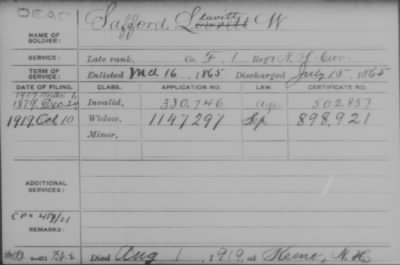 DEAD
Safford, Leavitt W
NAME OF SOLDIER:
SERVICE: Late rank, Co. F, 1 Reg't N. H. Cav.
TERM OF SERVICE: Enlisted Mch 16, 1865 Discharged July 15, 1865
DATE OF FILING. CLASS. APPLICATION NO. LAW. CERTIFICATE NO.
1879 Dec. 24 Invalid, 330,746 Age. 502,857
1919 Oct 10 Widow, 1147297 Gp. 898,921
Minor,
ADDITIONAL SERVICES:
REMARKS:
Died Aug 1, 1919, at Keene, N. H.